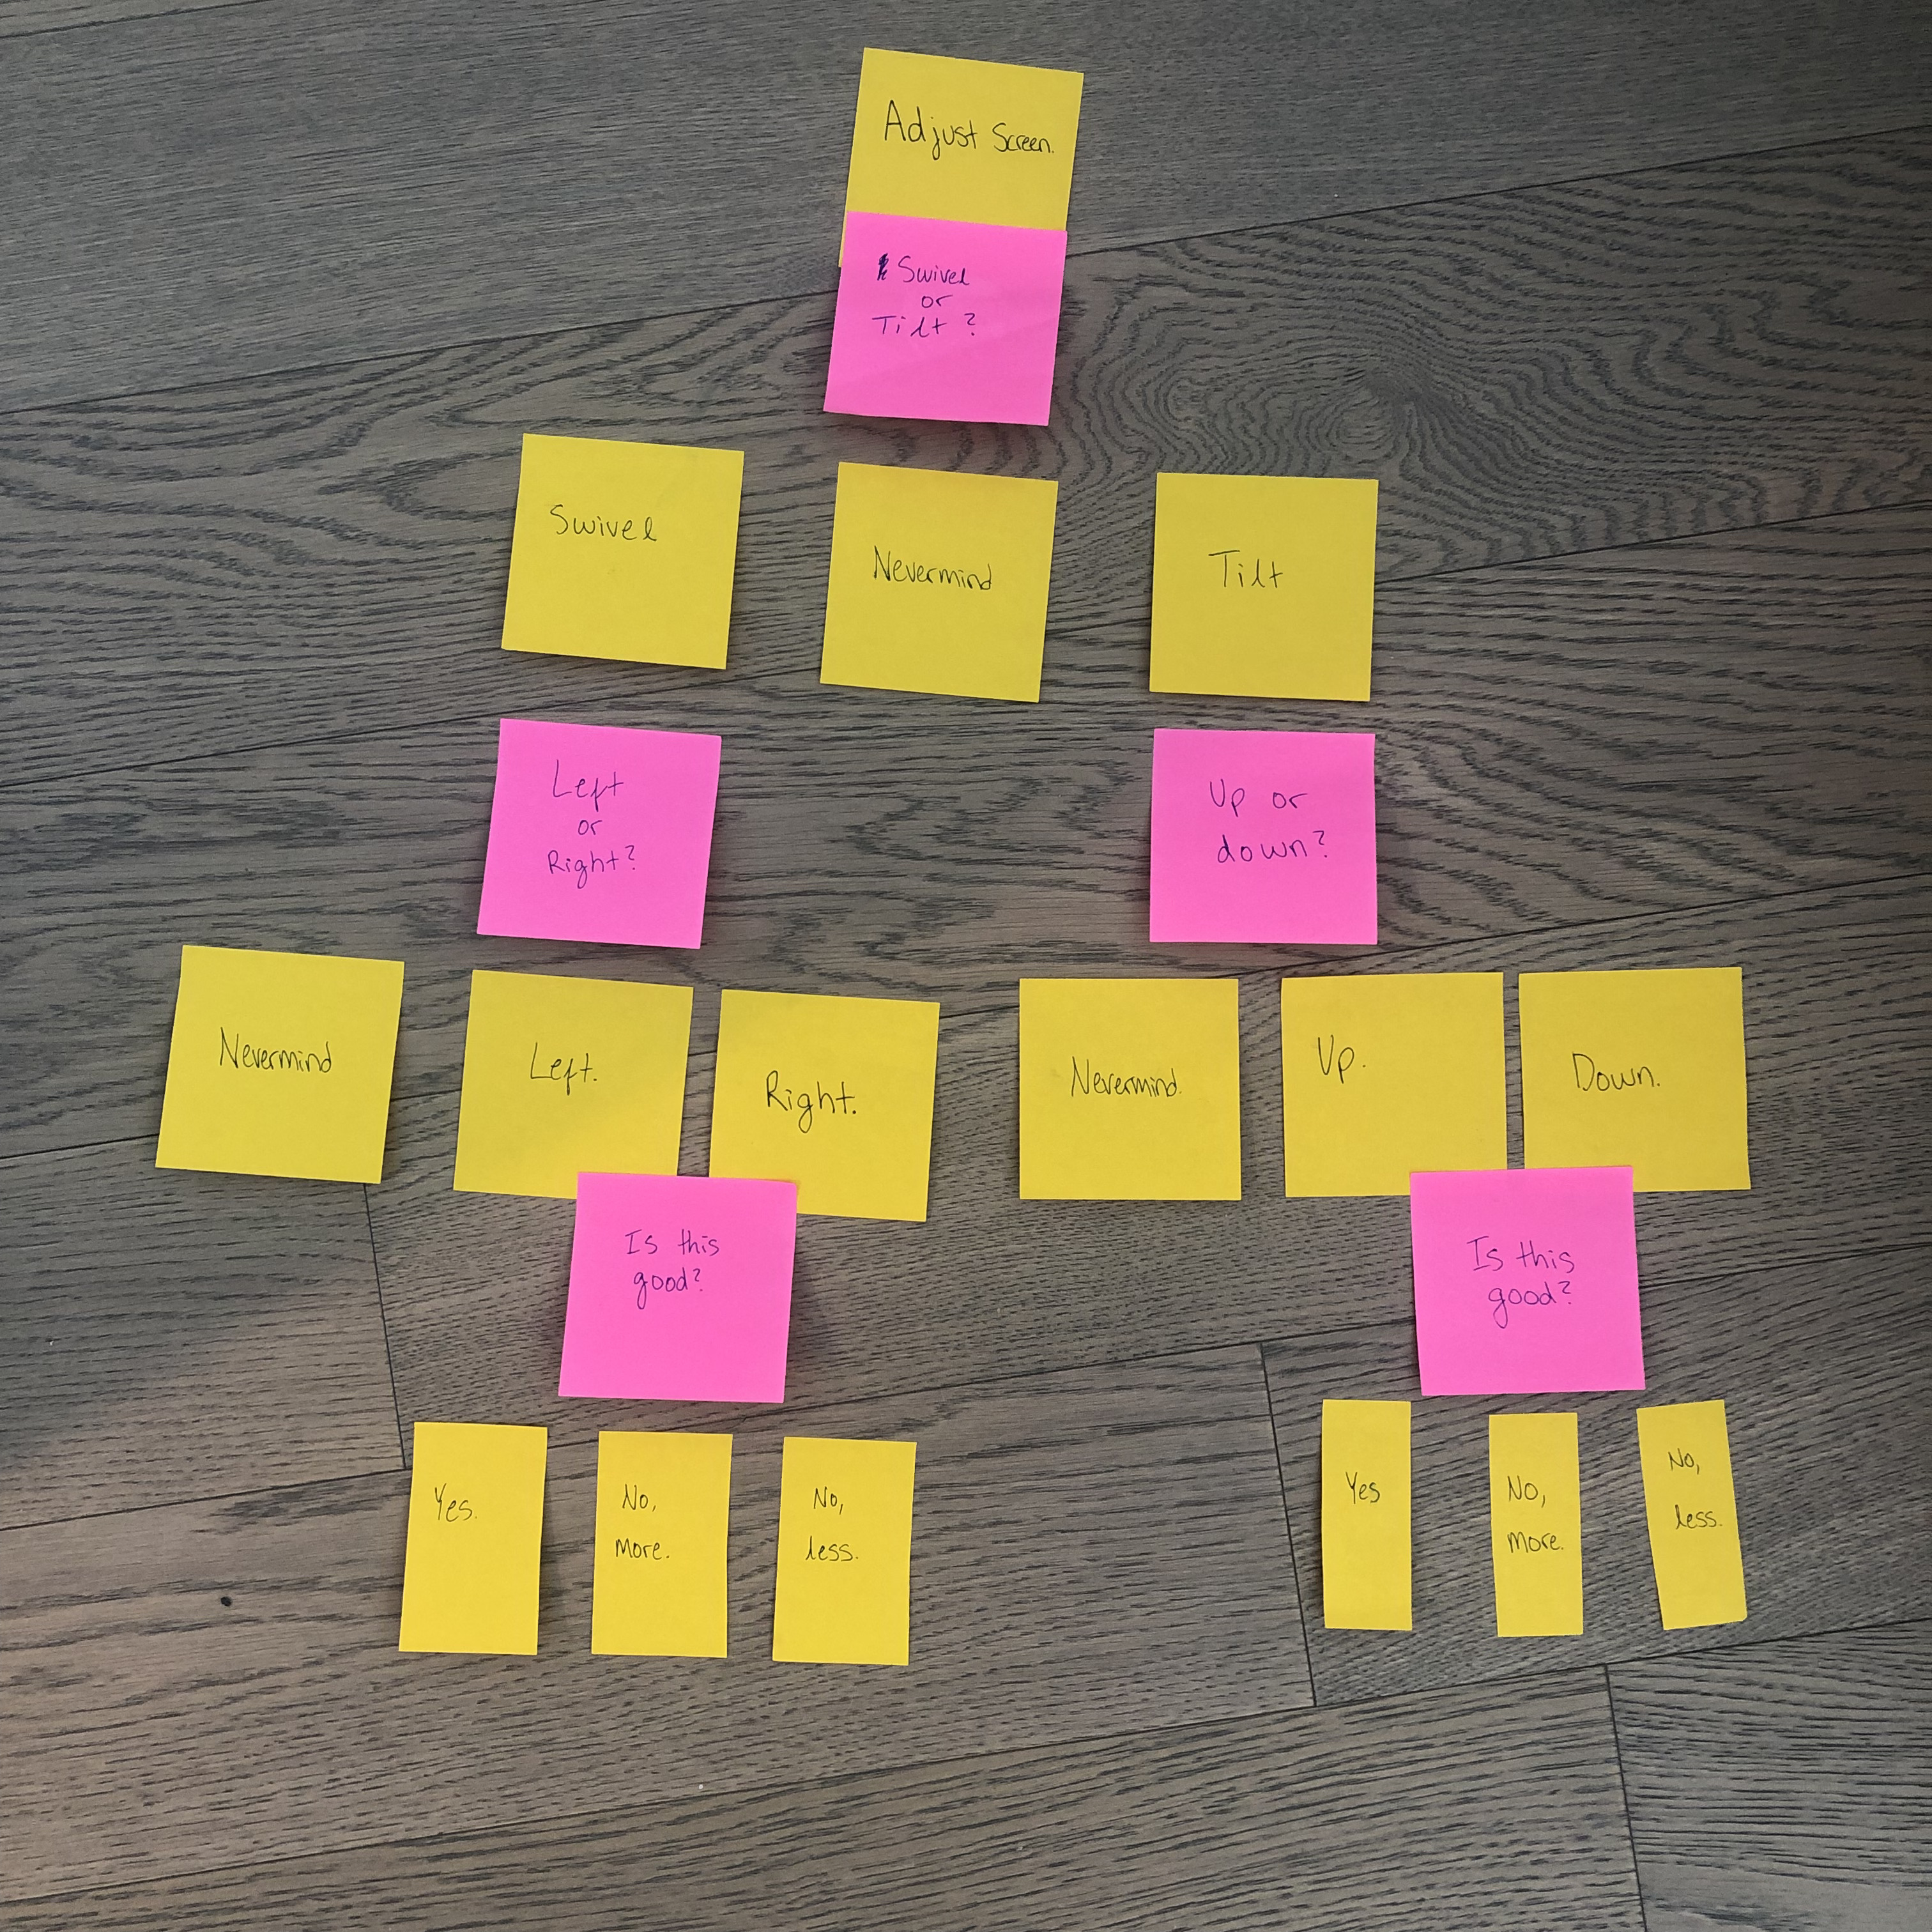 Adjust Screen.
Swivel
or
Tilt?
Swivel
Nevermind
Tilt
Left
or
Right?
Up or
down?
Nevermind
Left.
Right.
Nevermind.
Up.
Down.
Is this
good?
Is this
good?
Yes.
No,
more.
No,
less.
Yes
No,
more.
No,
less.